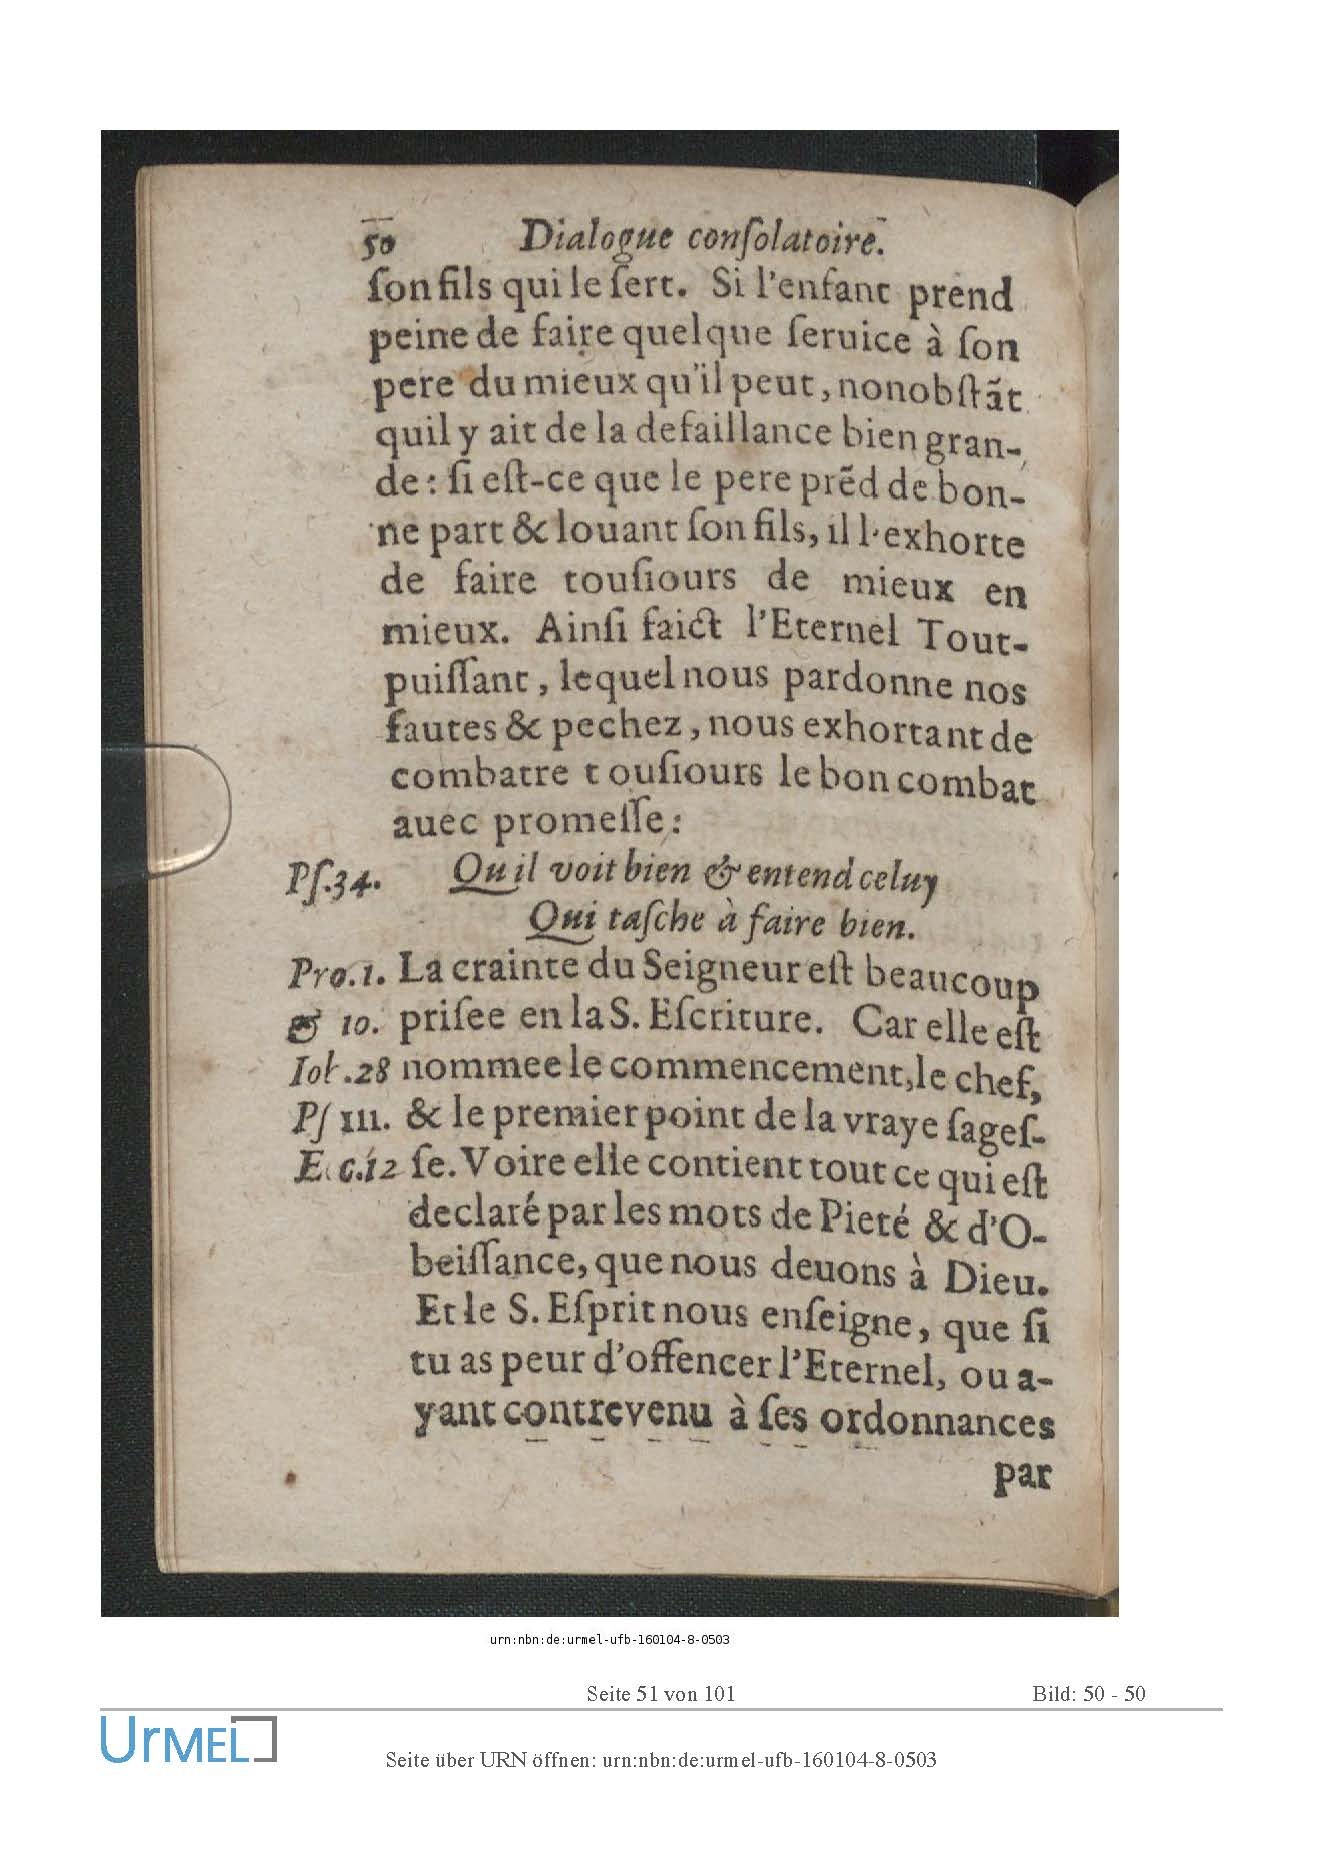 50 Dialogue conſolatoire.
ſon fils qui le ſert. Si l'enfant prend
peine de faire quelque ſeruice à ſon
pere du mieux qu'il peut, nonobſtãt
quil y ait de la defaillance bien gran-
de: ſi eſt-ce que le pere prẽd de bon-
ne part & louant ſon fils, il l'exhorte
de faire touſiours de mieux en
mieux. Ainſi faict l'Eternel Tout-
puiſſant, lequel nous pardonne nos
fautes & pechez, nous exhortant de
combatre touſiours le bon combat
auec promeſſe:
Pſ.34. Qu il voit bien & entend celuy
Qui taſche à faire bien.
Pro.1. La crainte du Seigneur eſt beaucoup
& 10. priſee en la S. Eſcriture. Car elle eſt
Iob.28 nommee le commencement, le chef,
Pſ 111. & le premier point de la vraye ſageſ-
Ecc.12 ſe. Voire elle contient tout ce qui eſt
declaré par les mots de Pieté & d'O-
beiſſance, que nous deuons à Dieu.
Et le S. Eſprit nous enſeigne, que ſi
tu as peur d'offencer l'Eternel, ou a-
yant contrevenu à ſes ordonnances
par
urn:nbn:de:urmel-ufb-160104-8-0503
Seite 51 von 101 Bild: 50 - 50
UrMEL
Seite über URN öffnen: urn:nbn:de:urmel-ufb-160104-8-0503